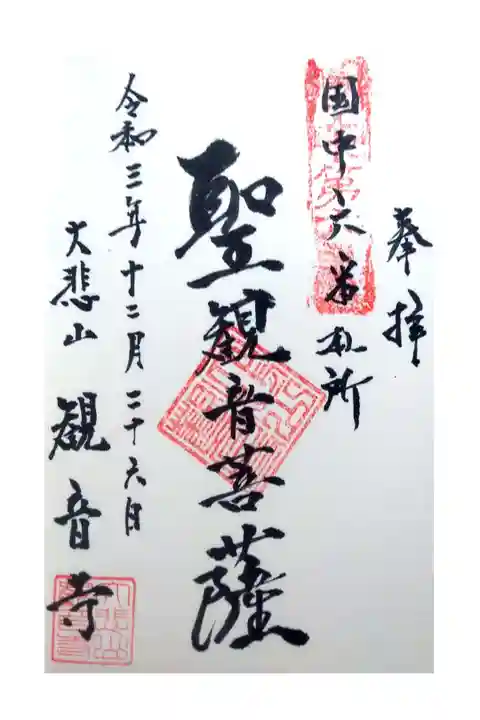 奉拝
国中
札所
聖観音菩薩
令和三年十二月二十六日
大悲山 観音寺